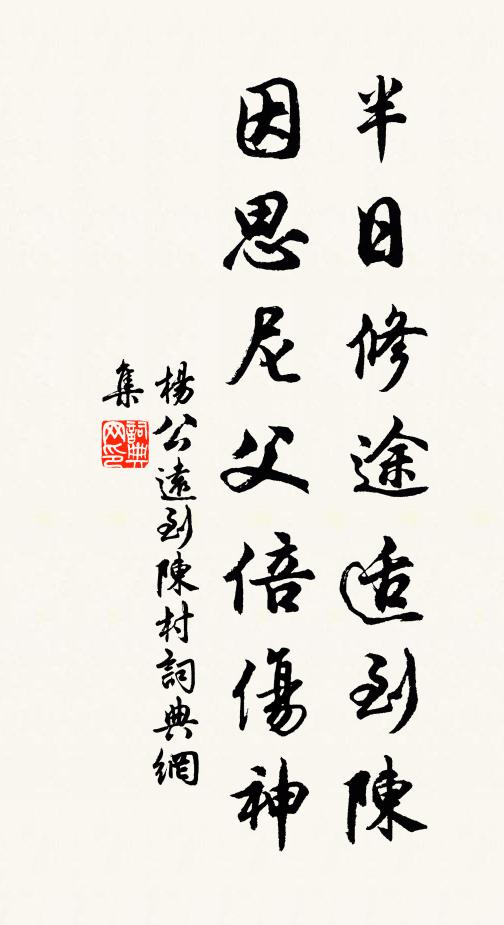 半日修途适到陳
因思尼父倍傷神
楊公遠到陳村詞典網
集
詞典
网印